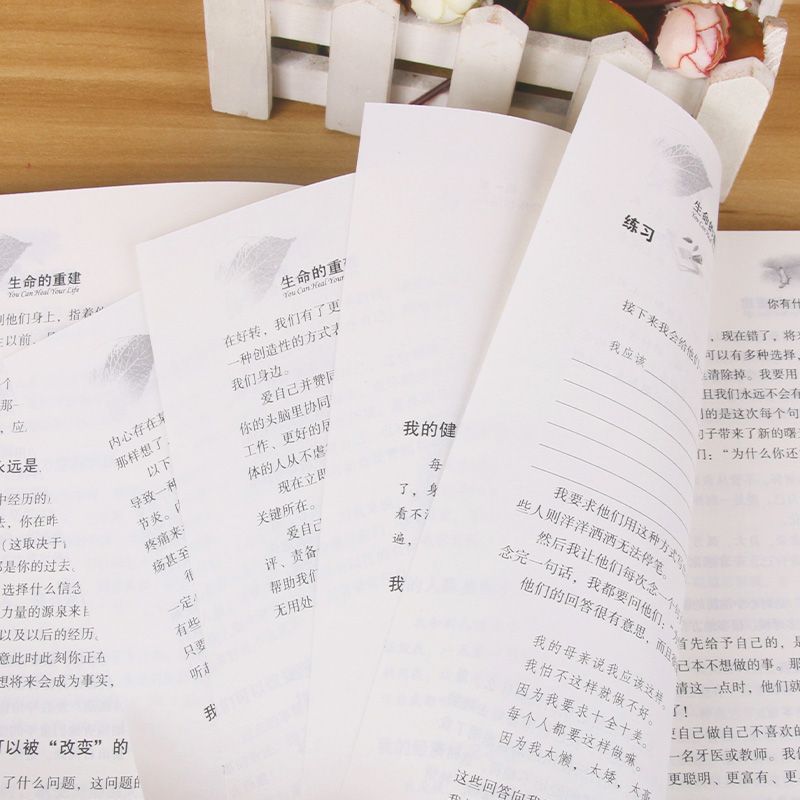 生命的重建
You Can Heal Your Life
到他们身上，指着他
在以前，
个
那一
，应
永远是
中经历的
去，你在昨
（这取决于
都是你的过去
选择什么信念
力量的源泉来自
以及以后的经历
意此时此刻你正在
想将来会成为事实，
可以被“改变”的
了什么问题，这问题的
内心存在某
那样想了
以下
导致一种
节炎。
疼痛来
疡甚至
一定
有些
只要
听
我
生命的重建
You Can Heal Your Life
在好转，我们有了更
一种创造性的方式表
我们身边。
爱自己并赞同
你的头脑里协同
工作、更好的居
体的人从不虐
现在立即
关键所在。
爱自己
评、责备
帮助我们
无用处
我的健
每
了，身
看不
遍，
我
生命的
You Can Heal
练习
接下来我会给他们
我应该
我要求他们用这种方式
些人则洋洋洒洒无法停笔。
然后我让他们每次念一个句
念完一句话，我都要问他们：“为
他们的回答很有意思，而且
我的母亲说我应该这样。
我怕不这样就做不好。
因为我要求十全十美。
每个人都要这样做嘛。
因为我太懒，太矮，太高
这些回答向我
你有什
，现在错了，将来
可以有多种选择，
清除掉。我要用
且我们永远不会有
的是这次每个句
句子带来了新的曙
们：“为什么你还
首先给予自己的，是
己本不想做的事。那
清这一点时，他们就
了！
更自己做自己不喜欢的
一名牙医或教师。我们
更聪明、更富有、更